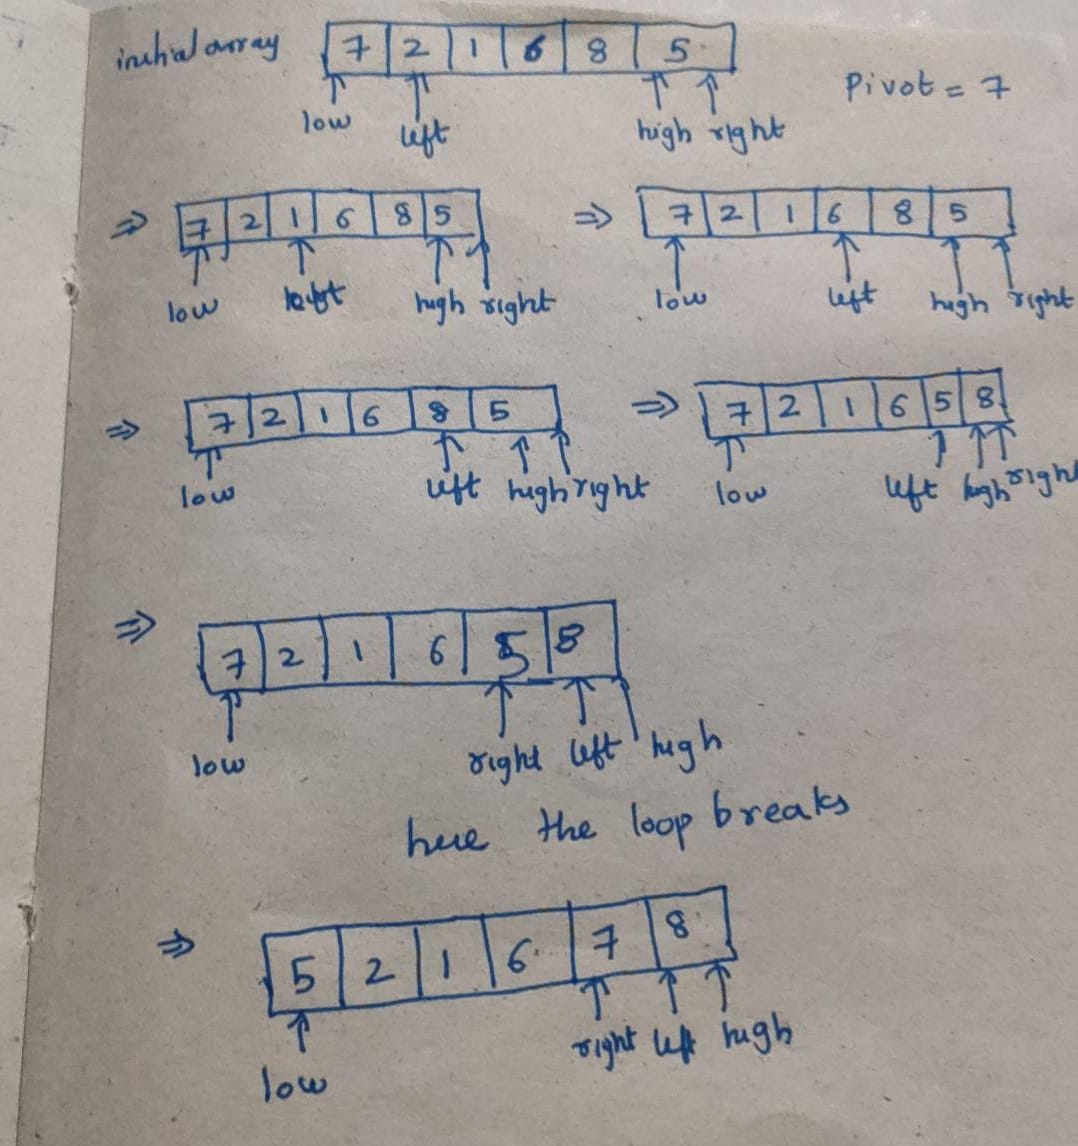 initial array 7 2 1 6 8 5
Pivot = 7
low left high right
⇒ 7 2 1 6 8 5 ⇒ 7 2 1 6 8 5
low left high right low left high right
⇒ 7 2 1 6 8 5 ⇒ 7 2 1 6 5 8
low left high right low left high right
⇒ 7 2 1 6 5 8
low right left high
here the loop breaks
⇒ 5 2 1 6 7 8
low right left high